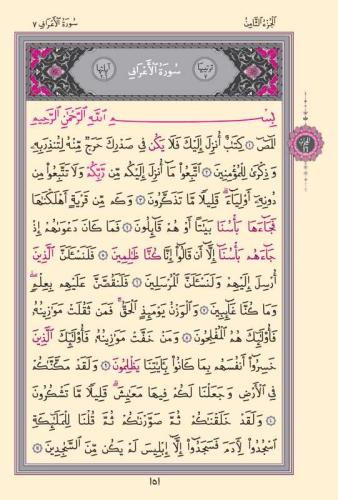 الجزء الثامن
سورة الأعراف ٧
سورة الأعراف
بسم الله الرحمن الرحيم
المص ١ كتاب أنزل إليك فلا يكن في صدرك حرج منه لتنذر به
وذكرى للمؤمنين ٢ اتبعوا ما أنزل إليكم من ربكم ولا تتبعوا من
دونه أولياء قليلا ما تذكرون ٣ وكم من قرية أهلكناها
فجاءها بأسنا بياتا أو هم قائلون ٤ فما كان دعواهم إذ
جاءهم بأسنا إلا أن قالوا إنا كنا ظالمين ٥ فلنسئلن الذين
أرسل إليهم ولنسئلن المرسلين ٦ فلنقصن عليهم بعلم
وما كنا غائبين ٧ والوزن يومئذ الحق فمن ثقلت موازينه
فأولئك هم المفلحون ٨ ومن خفت موازينه فأولئك الذين
خسروا أنفسهم بما كانوا بآياتنا يظلمون ٩ ولقد مكناكم
في الأرض وجعلنا لكم فيها معايش قليلا ما تشكرون
١٠ ولقد خلقناكم ثم صورناكم ثم قلنا للملائكة
اسجدوا لآدم فسجدوا إلا إبليس لم يكن من الساجدين ١١
١٥١